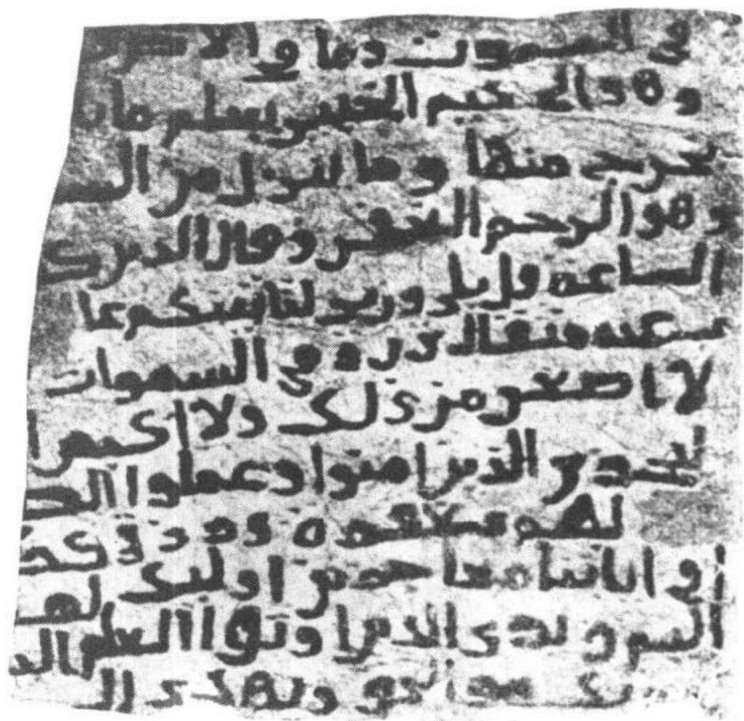 في السموت وما في الارض
وهو الحكيم الخبير يعلم ما
يخرج منها وما ينزل من السـ
وهو الرحيم الغفور وقال الذين كـ
الساعه قل بلى وربي لتاتينكم عا
عنه مثقال ذره في السموات
لا اصغر من ذلك ولا اكبر ا
ليجزي الذين امنوا وعملوا الصـ
لهم مغفره ورزق كر
في اياتنا معاجزين اوليك لهم
اليم ويرى الذين اوتوا العلم الذ
ربك هو الحق ويهدي الى